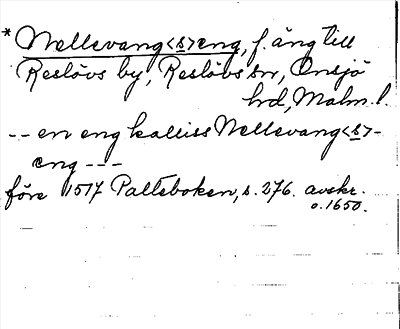 * Nellevang<s>eng, f. äng till
Reslövs by, Reslövs sn, Onsjö
hd, Malm. l.
-- en eng kalliss Nellevang<s>-
eng ---
före 1517 Palteboken, s. 276. avskr.
o. 1650.